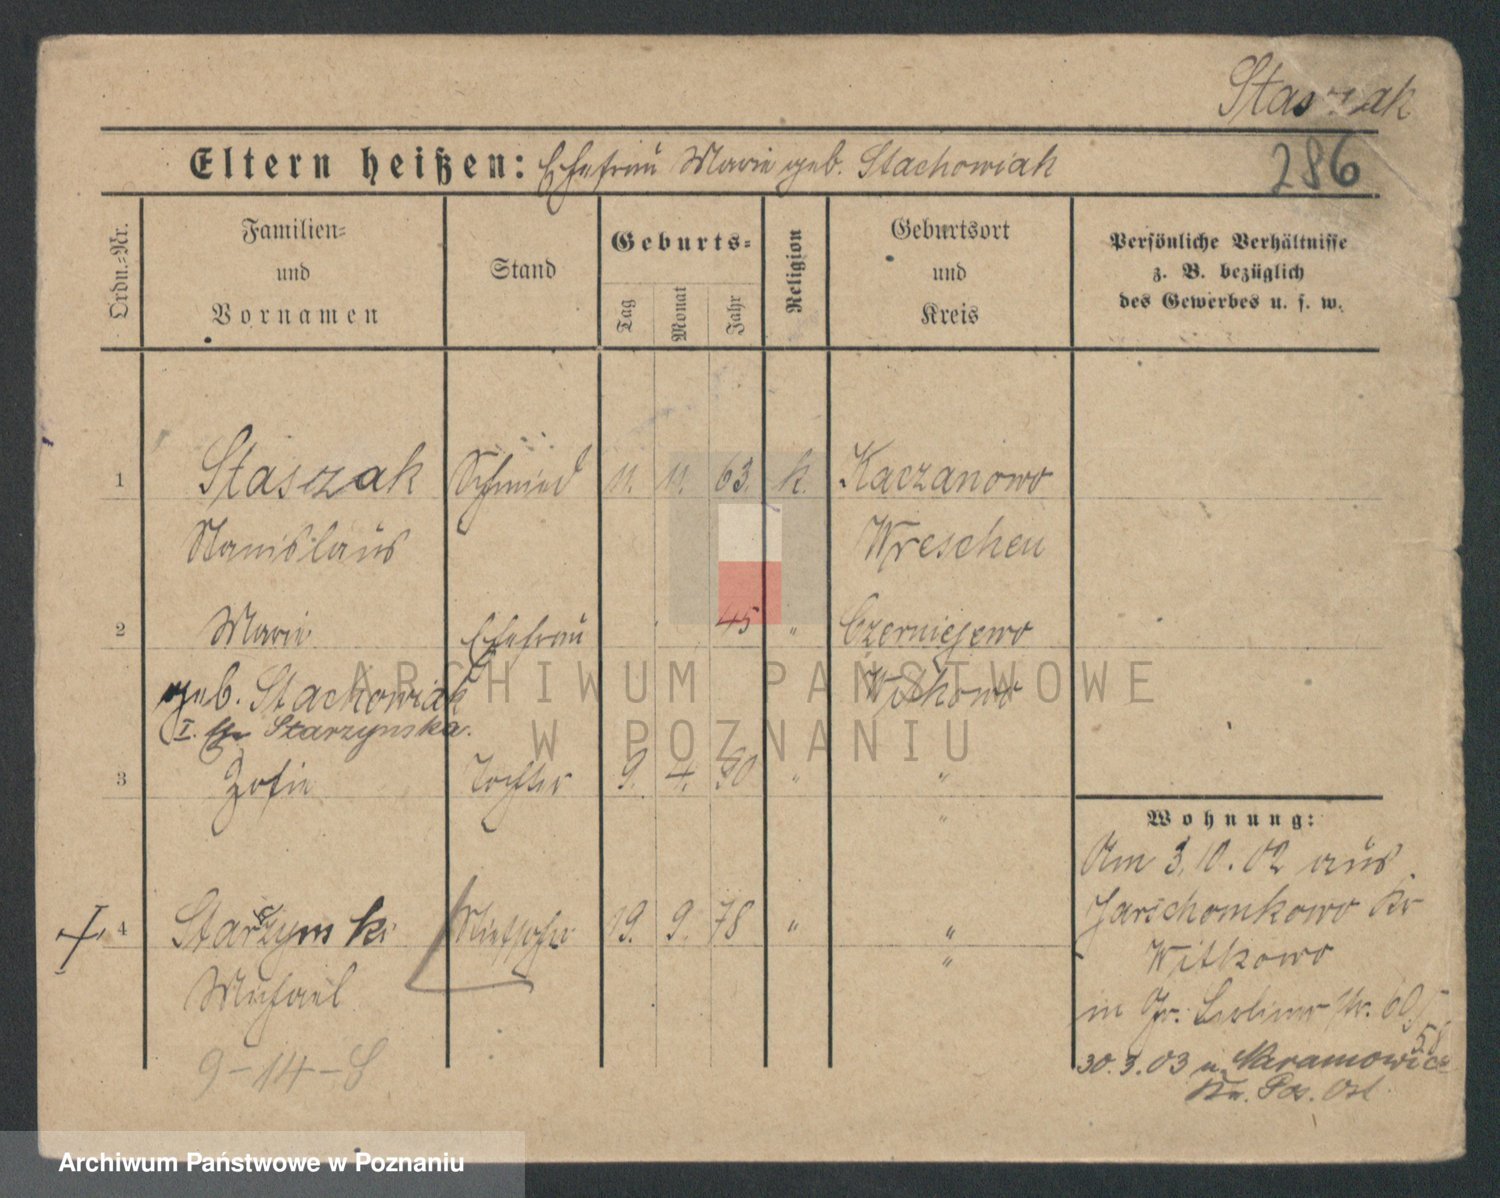 Staszak
286
Eltern heißen: Ehefrau Marie geb. Stachowiak
Ordn.-Nr.
Familien-
und
Vornamen
Stand
Geburts-
Tag
Monat
Jahr
Religion
Geburtsort
und
Kreis
Persönliche Verhältnisse
z. B. bezüglich
des Gewerbes u. s. w.
1 Staszak Schmied 11. 11. 63. k. Kaczanowo
Stanislaus Wreschen
2 Marie Ehefrau 45 " Czerniejewo
geb. Stachowiak Witkowo
I. Starzynska.
3 Zofie Tochter 9. 4. 90 " "
"
Wohnung:
Am 3.10.02 aus
Jarschomkowo Kr
Witkowo
in Gr. Berliner Str. 60
58
30.3.03 n. Naramowice
Kr. Pos. Ost
4 Starzynski 19. 9. 78 " "
"
Michael
9-14-S
ARCHIWUM PAŃSTWOWE
W POZNANIU
Archiwum Państwowe w Poznaniu